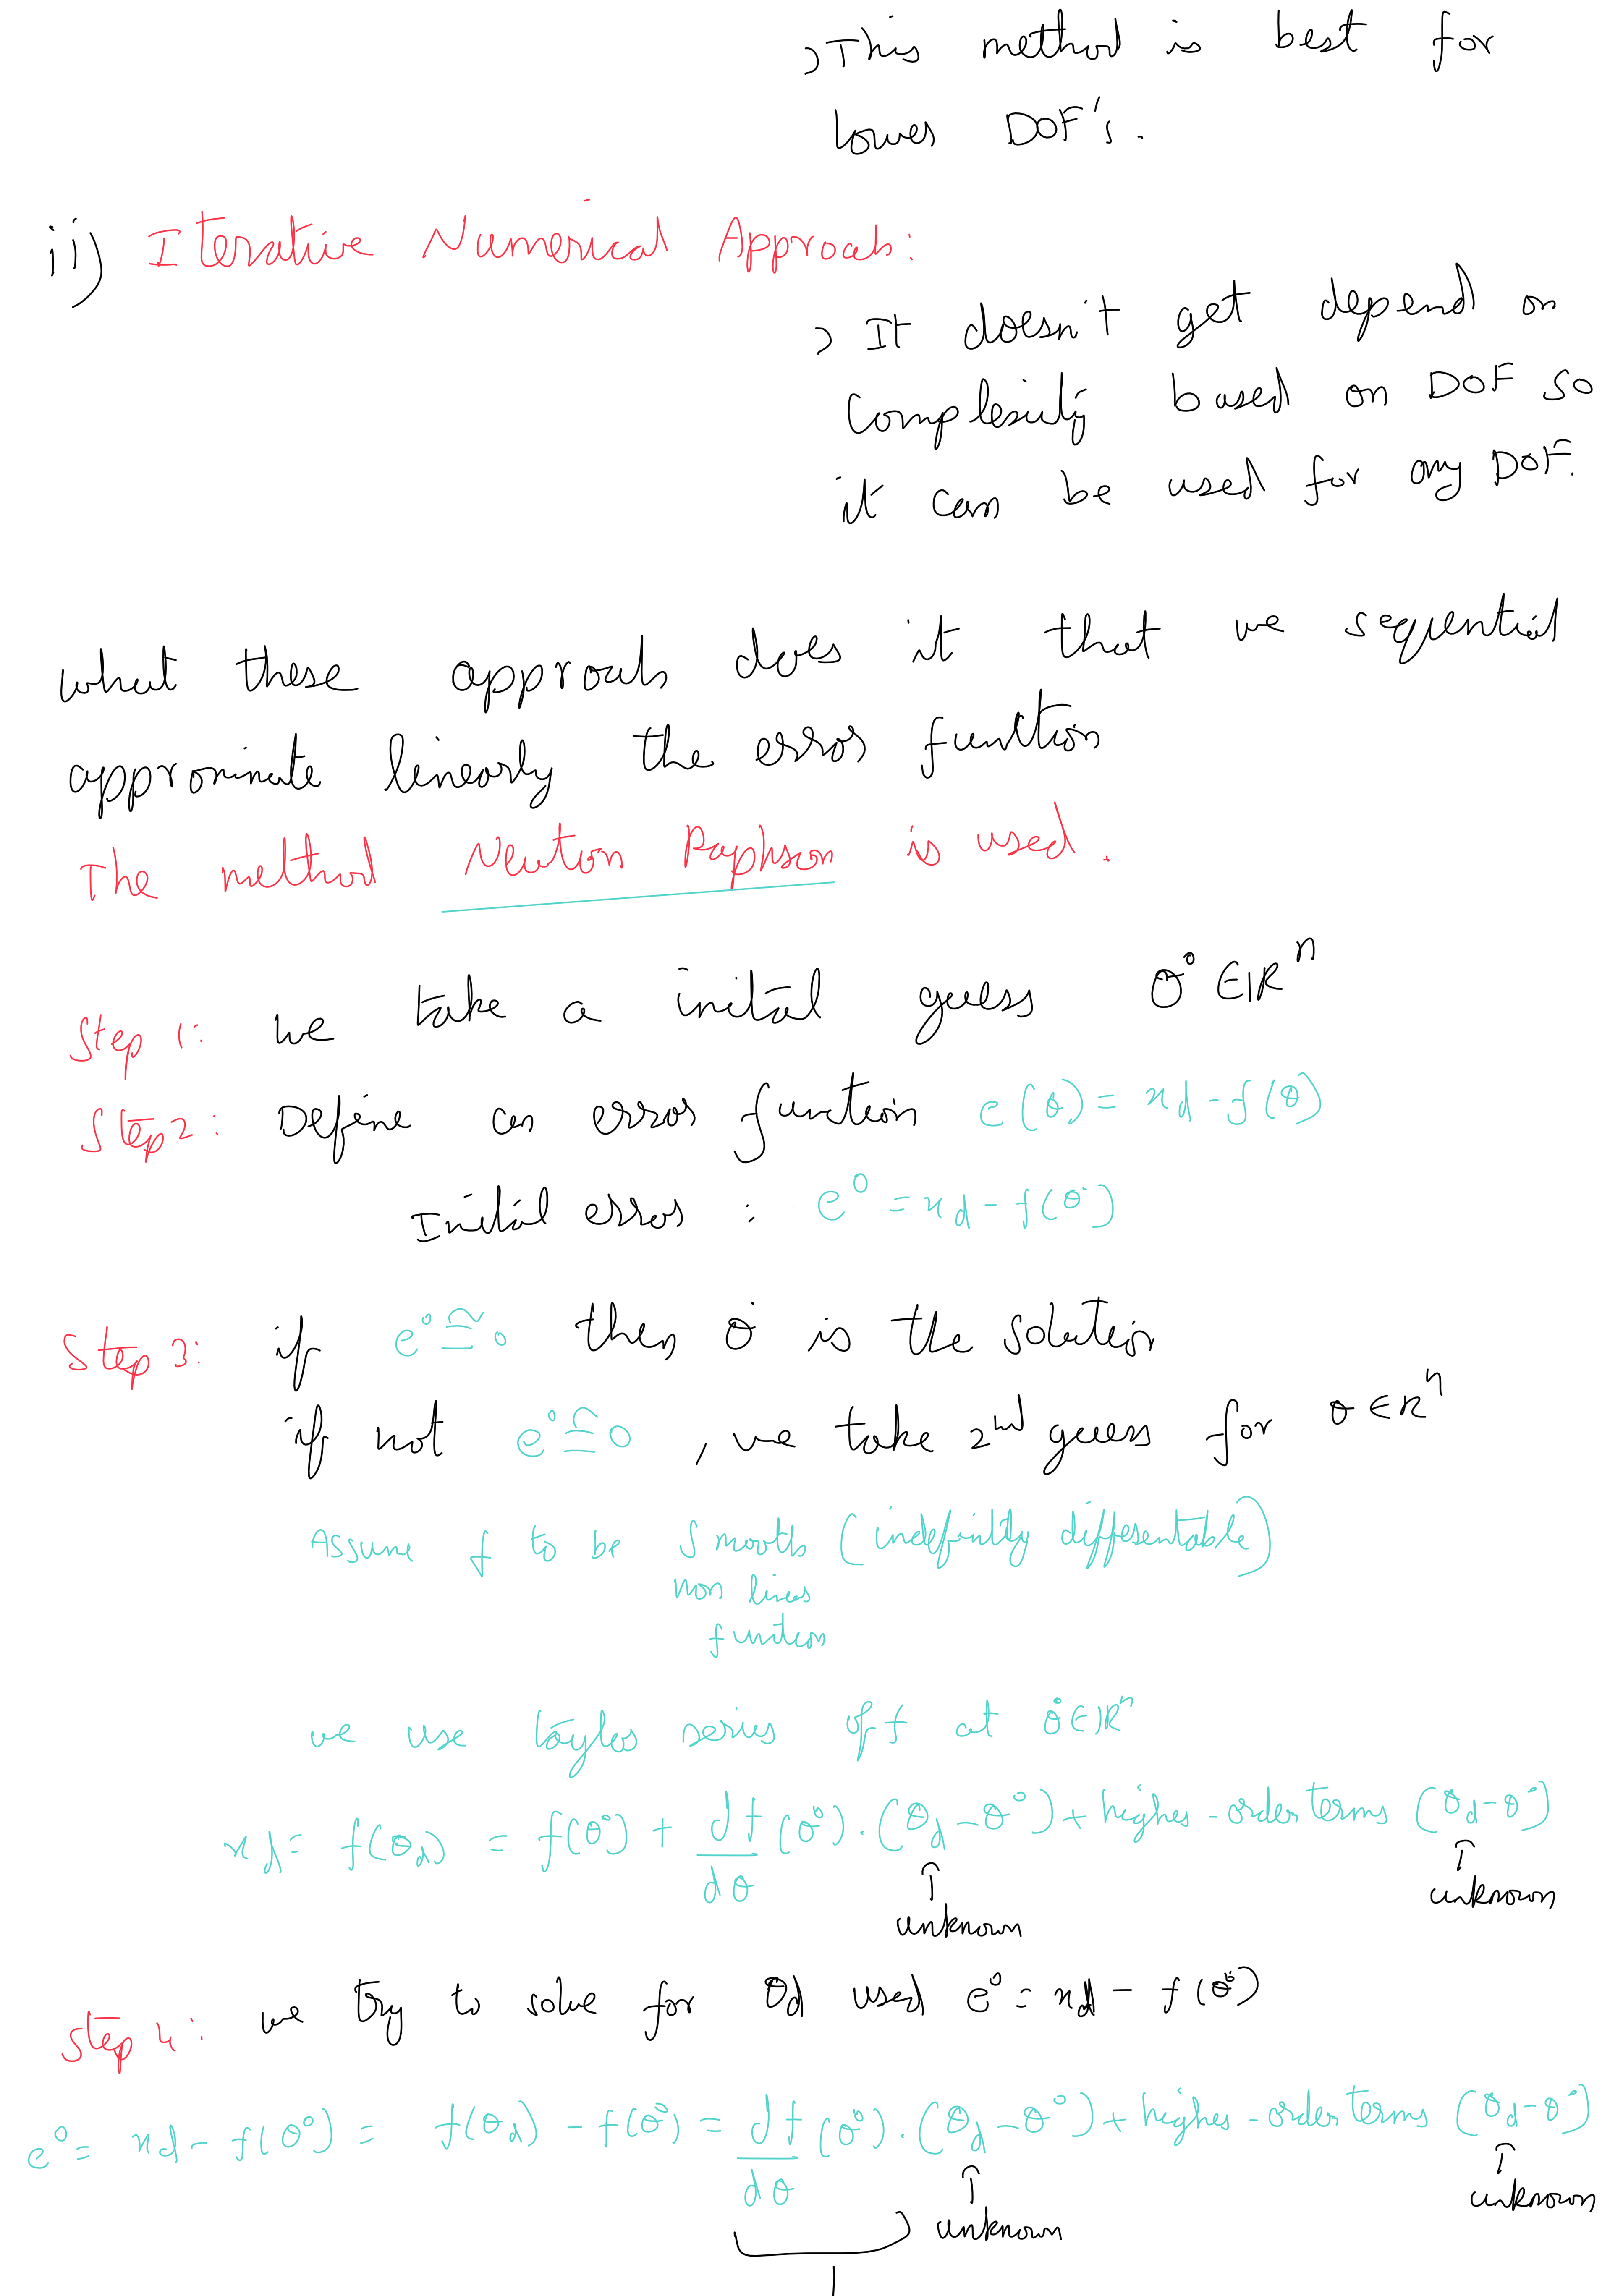 > This method is best for
lower DOF's.
ii) Iterative Numerical Approach:
> It doesn't get depend on
Complexity based on DOF so
it can be used for any DOF.
what these approach does it that we sequential
approximate linearly the error function
The method Newton Raphson is used.
Step 1: we take a initial guess θ⁰ ∈ ℝⁿ
Step 2: Define an error function e(θ) = x_d - f(θ)
Initial error : e⁰ = x_d - f(θ⁰)
Step 3: if e⁰ ≅ 0 then θ⁰ is the solution
if not e⁰ ≅ 0 , we take 2nd guess for θ ∈ ℝⁿ
Assume f to be Smooth (indefinitly differentable)
non linear
function
we use taylor series of f at θ⁰ ∈ ℝⁿ
x_d = f(θ_d) = f(θ⁰) + df/dθ (θ⁰) . (θ_d - θ⁰) + higher-order terms (θ_d - θ⁰)
↑ unknown ↑ unknown
Step 4: we try to solve for θ_d used e⁰ = x_d - f(θ⁰)
e⁰ = x_d - f(θ⁰) = f(θ_d) - f(θ⁰) = df/dθ (θ⁰) . (θ_d - θ⁰) + higher-order terms (θ_d - θ⁰)
↑ unknown ↑ unknown